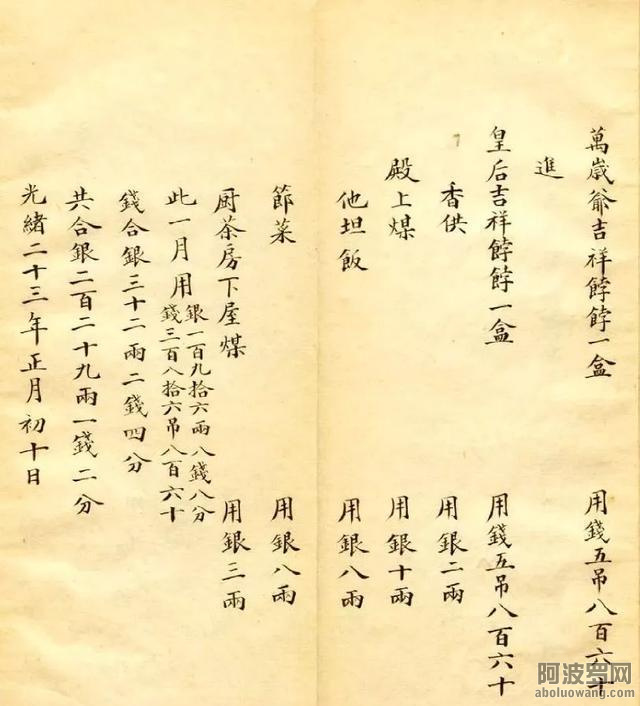 萬歲爺吉祥餑餑一盒 用錢五吊八百六十
進
皇后吉祥餑餑一盒 用錢五吊八百六十
香供 用銀二兩
殿上煤 用銀十兩
他坦飯 用銀八兩
節菜 用銀八兩
厨茶房下屋煤 用銀三兩
此一月用銀一百九拾六兩八錢八分
錢三百八拾六吊八百六十
錢合銀三十二兩二錢四分
共合銀二百二十九兩一錢二分
光緒二十三年正月初十日
阿波罗网
aboluowang.com